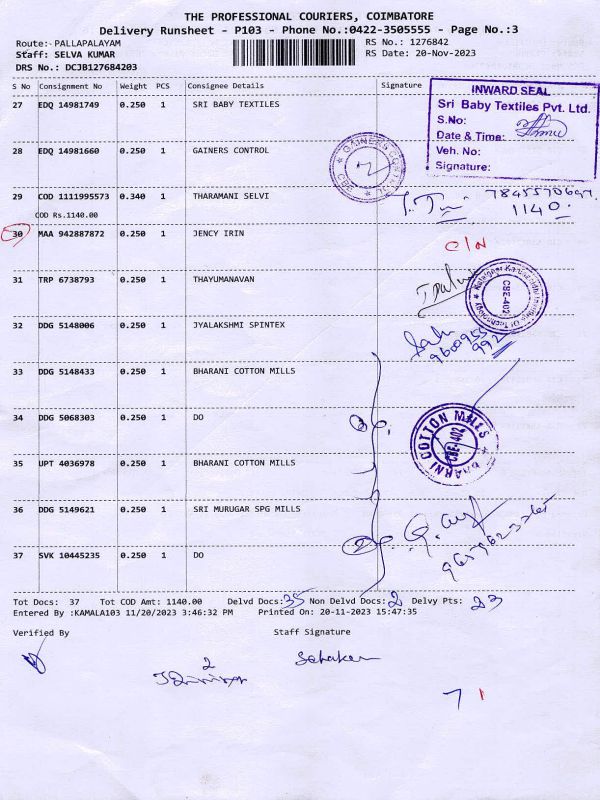 THE PROFESSIONAL COURIERS, COIMBATORE
Delivery Runsheet - P103 - Phone No.:0422-3505555 - Page No.:3
Route: PALLAPALAYAM
Staff: SELVA KUMAR
DRS No.: DCJB127684203
RS No.: 1276842
RS Date: 20-Nov-2023
S No Consignment No Weight PCS Consignee Details Signature
27 EDQ 14981749 0.250 1 SRI BABY TEXTILES
INWARD SEAL
Sri Baby Textiles Pvt. Ltd.
S.No:
Date & Time:
Veh. No:
Signature:
28 EDQ 14981660 0.250 1 GAINERS CONTROL
GAINERS CBE
29 COD 1111995573 0.340 1 THARAMANI SELVI
COD Rs.1140.00
1140.
30 MAA 942887872 0.250 1 JENCY IRIN
C/N
31 TRP 6738793 0.250 1 THAYUMANAVAN
Of Technology
CBE-402
32 DDG 5148006 0.250 1 JYALAKSHMI SPINTEX
33 DDG 5148433 0.250 1 BHARANI COTTON MILLS
34 DDG 5068303 0.250 1 DO
BHARNI COTTON MILLS
CBE-1402
35 UPT 4036978 0.250 1 BHARANI COTTON MILLS
36 DDG 5149621 0.250 1 SRI MURUGAR SPG MILLS
37 SVK 10445235 0.250 1 DO
2
Tot Docs: 37 Tot COD Amt: 1140.00 Delvd Docs: 35 Non Delvd Docs: 2 Delvy Pts: 23
Entered By :KAMALA103 11/20/2023 3:46:32 PM Printed On: 20-11-2023 15:47:35
Verified By Staff Signature
2
7 1